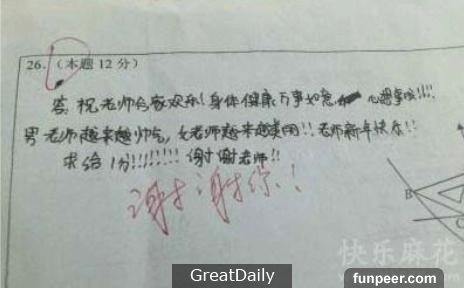 26.(本题 12 分)
答:祝老师合家欢乐!身体健康,万事如意,心想事成!!!!
男老师越来越帅气,女老师越来越美丽!!老师新年快乐!!
求给1分!!!!!!!!谢谢老师!!
谢谢你!!
B
C
快乐麻花
GreatDaily
funpeer.com